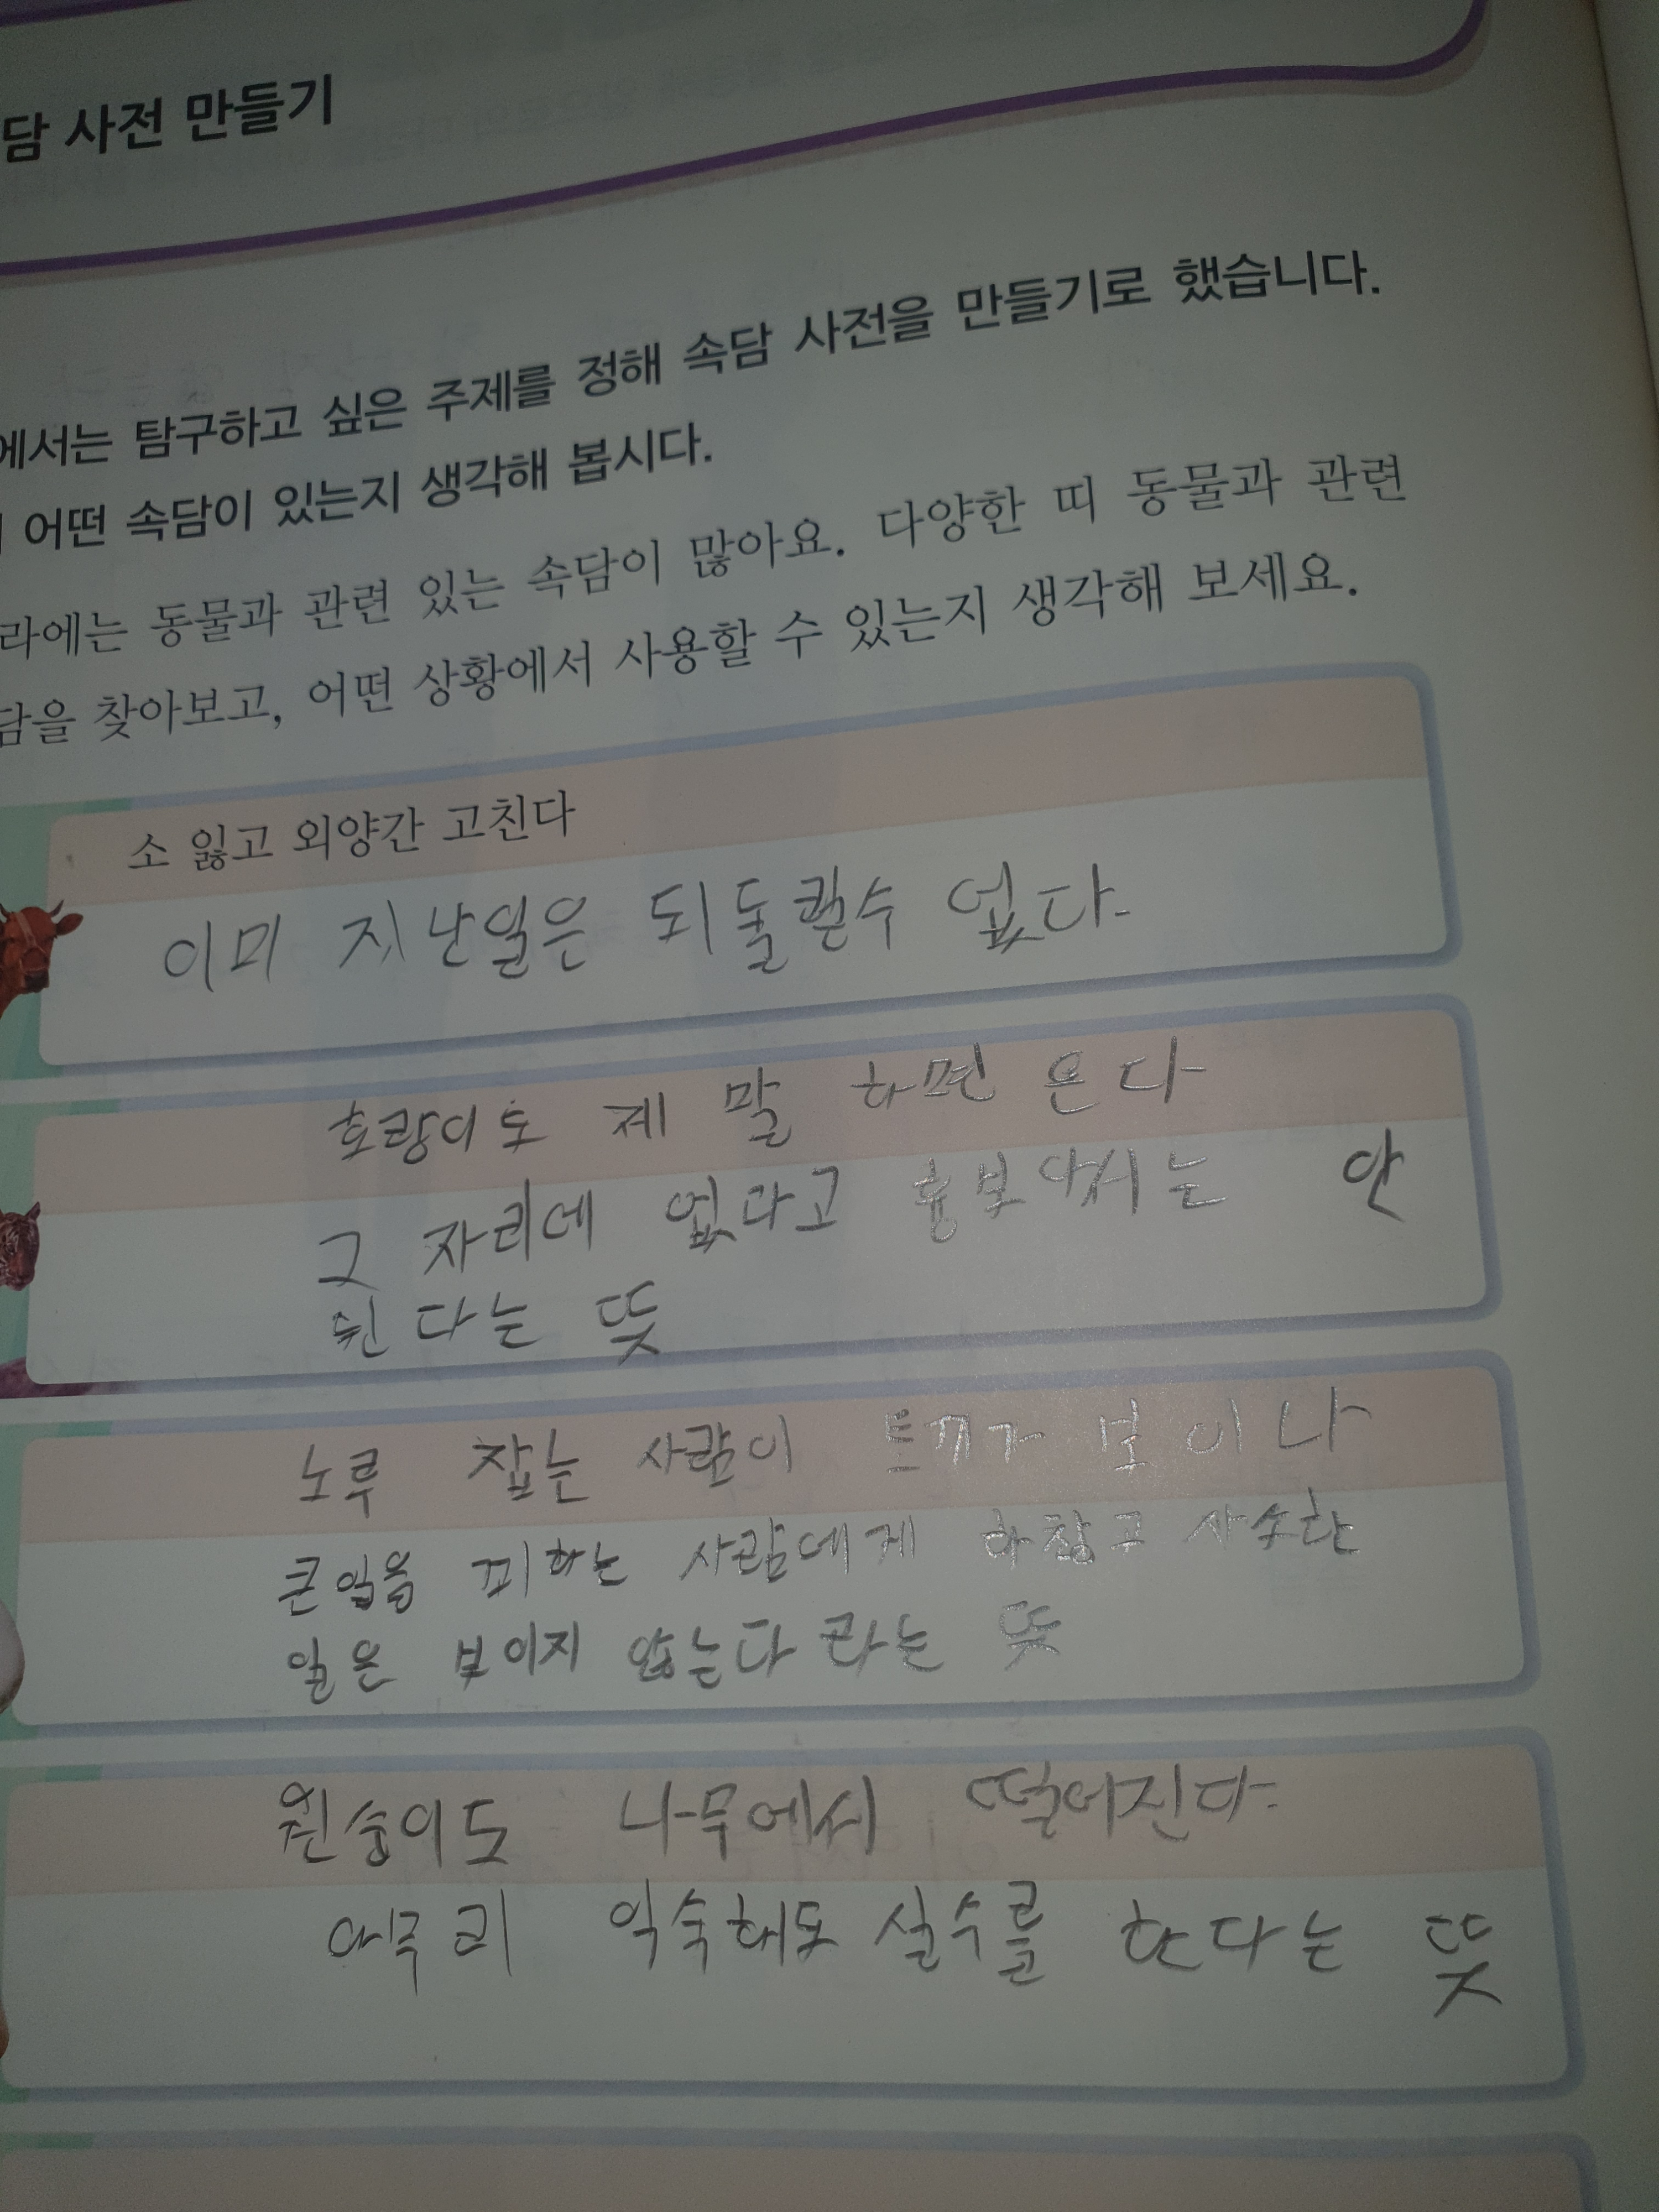 담 사전 만들기
에서는 탐구하고 싶은 주제를 정해 속담 사전을 만들기로 했습니다.
어떤 속담이 있는지 생각해 봅시다.
라에는 동물과 관련 있는 속담이 많아요. 다양한 띠 동물과 관련
담을 찾아보고, 어떤 상황에서 사용할 수 있는지 생각해 보세요.
소 잃고 외양간 고친다
이미 지난일은 되돌릴수 없다.
호랑이도 제 말 하면 온다
그 자리에 없다고 흉보아서는 안
된다는 뜻
노루 잡는 사람이 토끼가 보이나
큰일을 꾀하는 사람에게 하찮고 사소한
일은 보이지 않는다라는 뜻
원숭이도 나무에서 떨어진다.
아무리 익숙해도 실수를 한다는 뜻